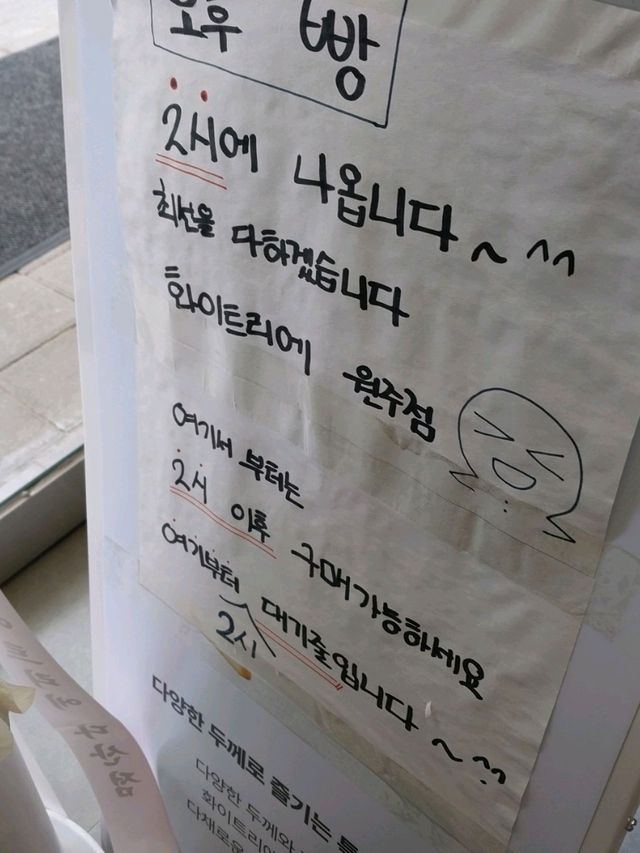 오후 빵
2시에 나옵니다~^^
최선을 다하겠습니다
화이트리에 원주점
여기서 부터는
2시 이후 구매가능하세요
여기부터 2시 대기줄입니다~^^
다양한 두께로 즐기는
다양한 두께와
화이트리에
다채로운